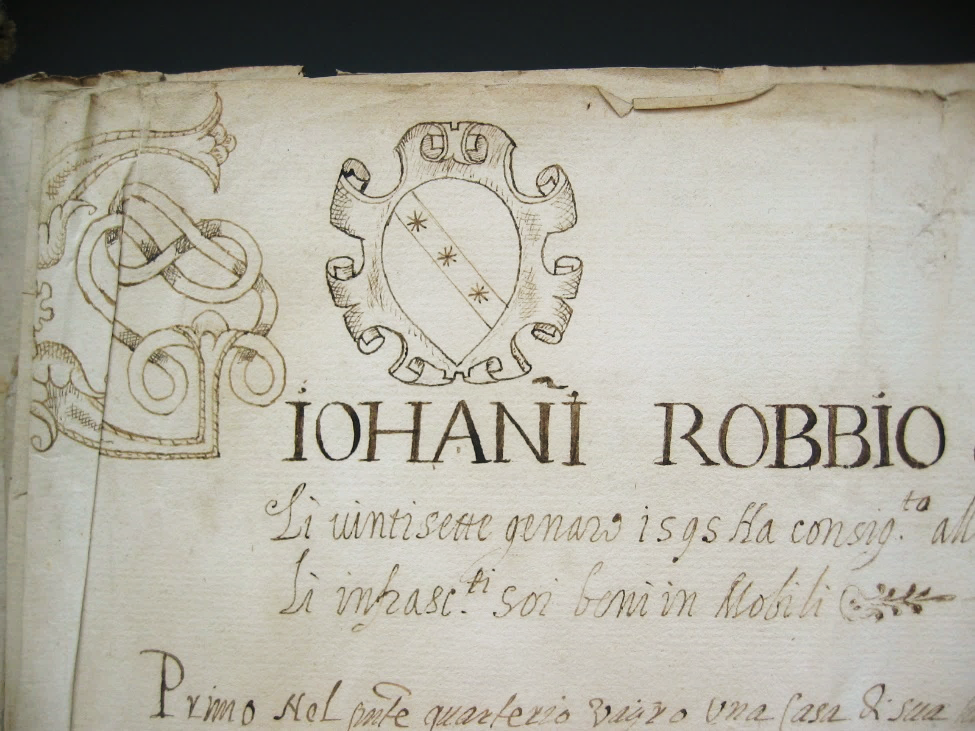 IOHAÑI ROBBIO
Li vintisette genaro 1595 Ha consig.to all
Li infrasc.ti soi beni in Mobili
Primo Nel pñte quarterio una Casa di sua